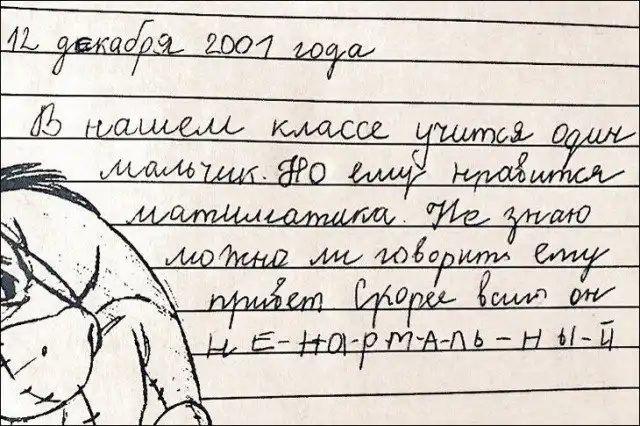 12 декабря 2001 года
В нашем классе учится один
мальчик. Но ему нравится
матиматика. Не знаю
можно ли говорить ему
привет Скорее всего он
Н Е-НА-Р М-А-ЛЬ-Н Ы-Й